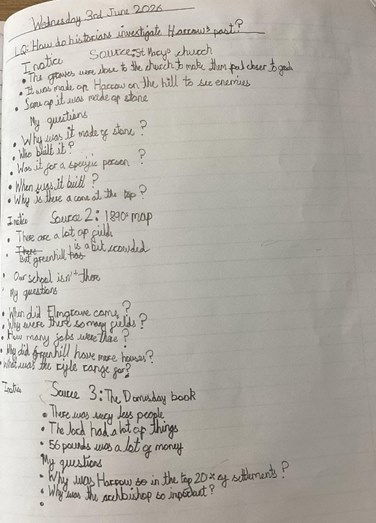 Wednesday 3rd June 2026
LQ: How do historians investigate Harrow's past?
I notice Source: St Mary's church
• The graves were close to the church to make them feel closer to god
• It was made op Harrow on the hill to see enemies
• Some op it was made op stone
My questions
• Why was it made of stone?
• Who built it?
• Was it for a specific person?
• When was it built?
• Why is there a cone at the top?
I notice Source 2: 1890s map
• There are a lot op fields
• But greenhill is a bit crowded
• Our school isn't there
My questions
• When did Elmgrove come?
• Why were there so many fields?
• How many jobs were there?
• Why did Greenhill have more houses?
• What was the rifle range for?
I notice Source 3: The Domesday book
• There was very less people
• The lord had a lot op things
• 56 pounds was a lot of money
My questions
• Why was Harrow so in the top 20% of settlements?
• Why was the archbishop so inportant?
•